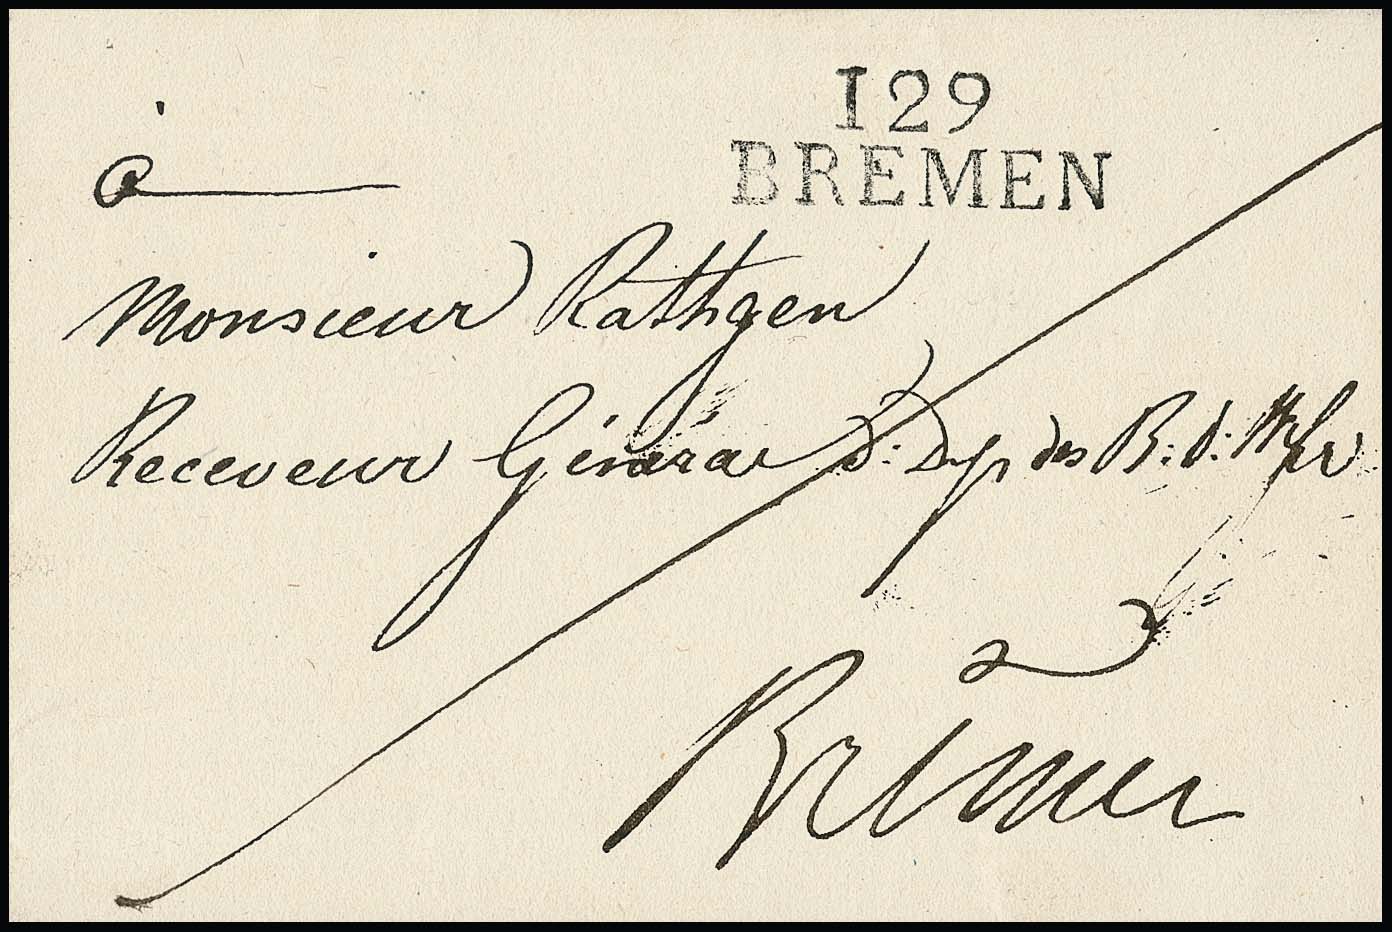 129
BREMEN
à
Monsieur Rathgen
Receveur Général d: Dep des B: d: W
à
Brême